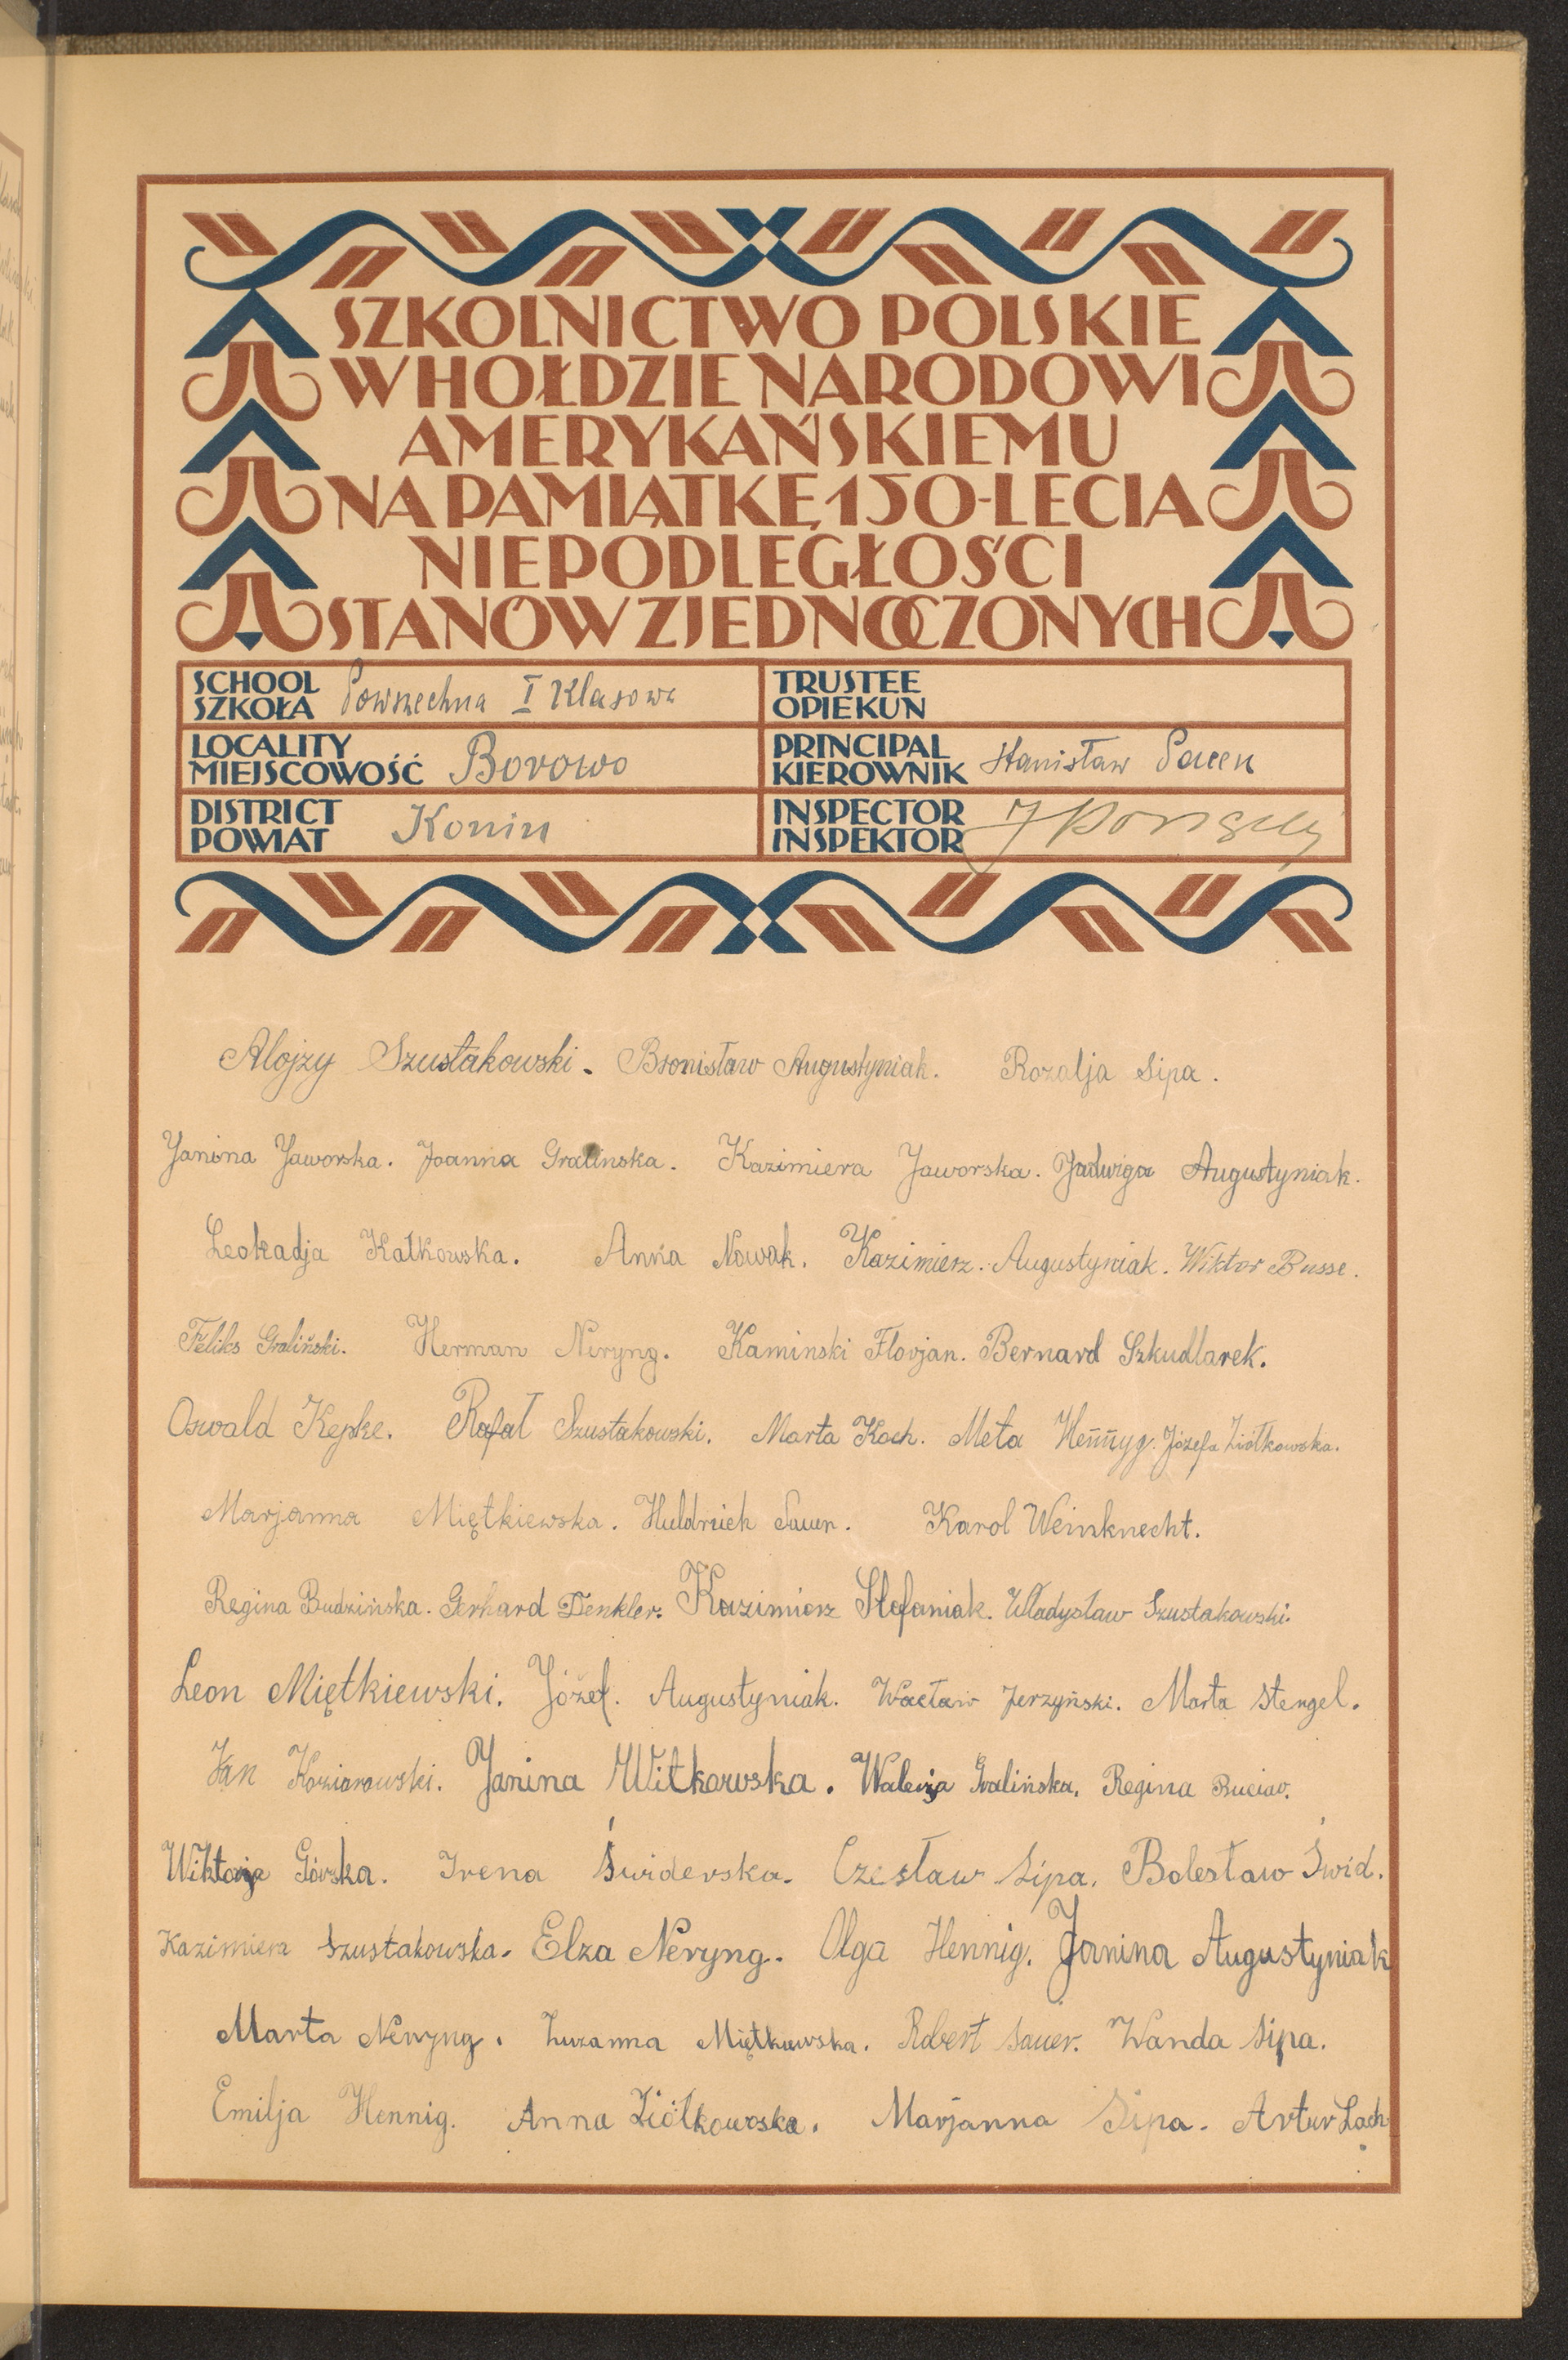 SZKOLNICTWO POLSKIE
W HOŁDZIE NARODOWI
AMERYKAŃSKIEMU
NA PAMIĄTKĘ 150-LECIA
NIEPODLEGŁOŚCI
STANÓW ZJEDNOCZONYCH
SCHOOL
SZKOŁA Powszechna I Klasowa
TRUSTEE
OPIEKUN
LOCALITY
MIEJSCOWOŚĆ Borowo
PRINCIPAL
KIEROWNIK Stanisław
DISTRICT
POWIAT Konin
INSPECTOR
INSPEKTOR
Alojzy Szustakowski. Bronisław Augustyniak. Rozalja Sipa.
Janina Jaworska. Joanna Gralinska. Kazimiera Jaworska. Jadwiga Augustyniak.
Leokadja Kałkowska. Anna Nowak. Kazimierz. Augustyniak. Wiktor Busse.
Feliks Graliński. Herman Neryng. Kaminski Florjan. Bernard Szkudlarek.
Oswald Kepke. Rafał Szustakowski. Marta Koch. Meta Józefa Ziółkowska.
Marjanna Miętkiewska. Huldreich Sauer. Karol Weinknecht.
Regina Budzińska. Gerhard Denkler. Kazimierz Stefaniak. Władysław Szustakowski.
Leon Miętkiewski. Józef. Augustyniak. Wacław Jerzyński. Marta Stengel.
Jan Janina Witkowska. Walerja Gralińska. Regina
Wiktorja Górska. Irena Świderska. Czesław Sipa. Bolesław Świd.
Kazimiera Szustakowska. Elza Neryng. Olga Hennig. Janina Augustyniak
Marta Neryng. Zuzanna Miętkiewska. Robert Sauer. Wanda Sipa.
Emilja Hennig. Anna Ziółkowska. Marjanna Sipa. Artur Lach.